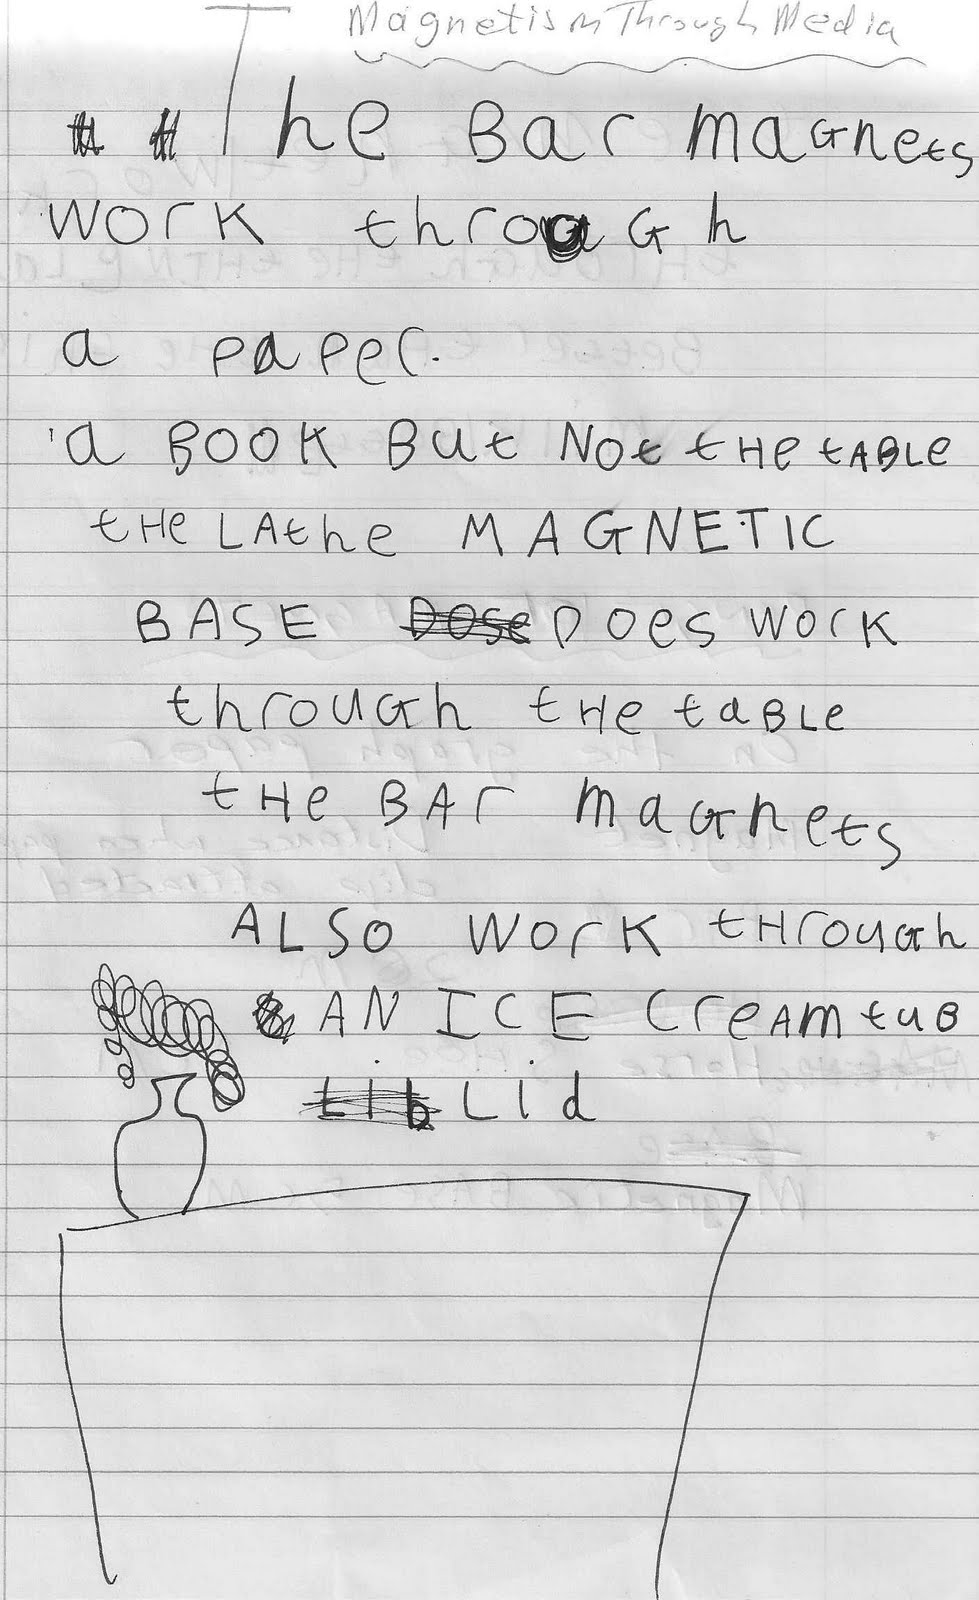 Magnetism Through Media
The Bar magnets
work throuGh
a paper.
a BOOK But Not tHe tABLe
tHe LAthe MAGNETIC
BASE Dose Does work
throuGh tHe taBLe
tHe BAr magnets
ALSO work tHrouGh
AN ICE CreAm tuB
Lib Lid